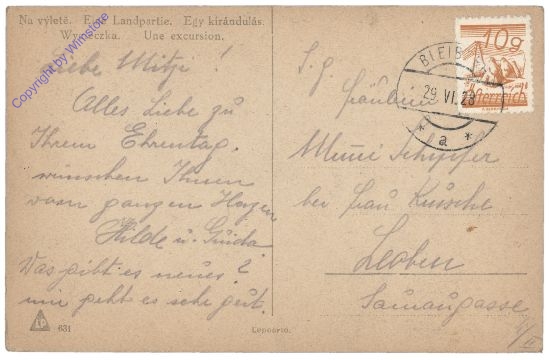 Na výletě. Eine Landpartie. Egy kirándulás.
Wycieczka. Une excursion.
Copyright by Wimstore
Liebe Mitzi!
Alles Liebe zu
Ihrem Ehrentag.
wünschen Ihnen
vom ganzen Herzen
Hilde u. Guida
Was gibt es neues?
mir geht es sehr gut.
631
Leporeto.
10g
Österreich
29.VI.28
*a*
S. g.
Fräulein
Schipfer
bei Frau
Leoben